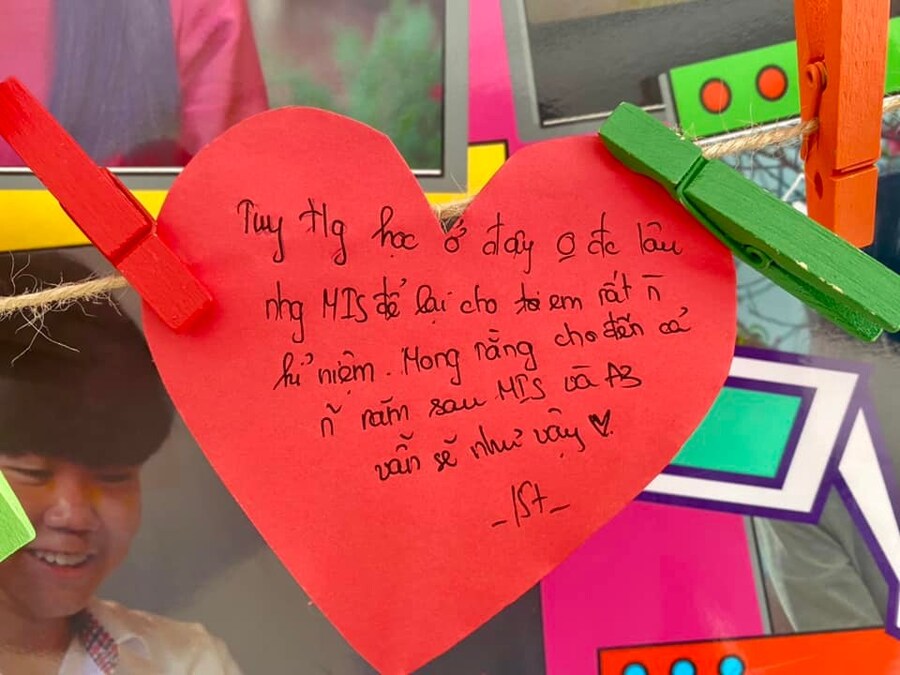 Tuy tg học ở đây o đc lâu
nhg MIS để lại cho em rất ñ
kỉ niệm. Mong rằng cho đến cả
ñ năm sau MIS và A3
vẫn sẽ như vậy ♥.
_1St_